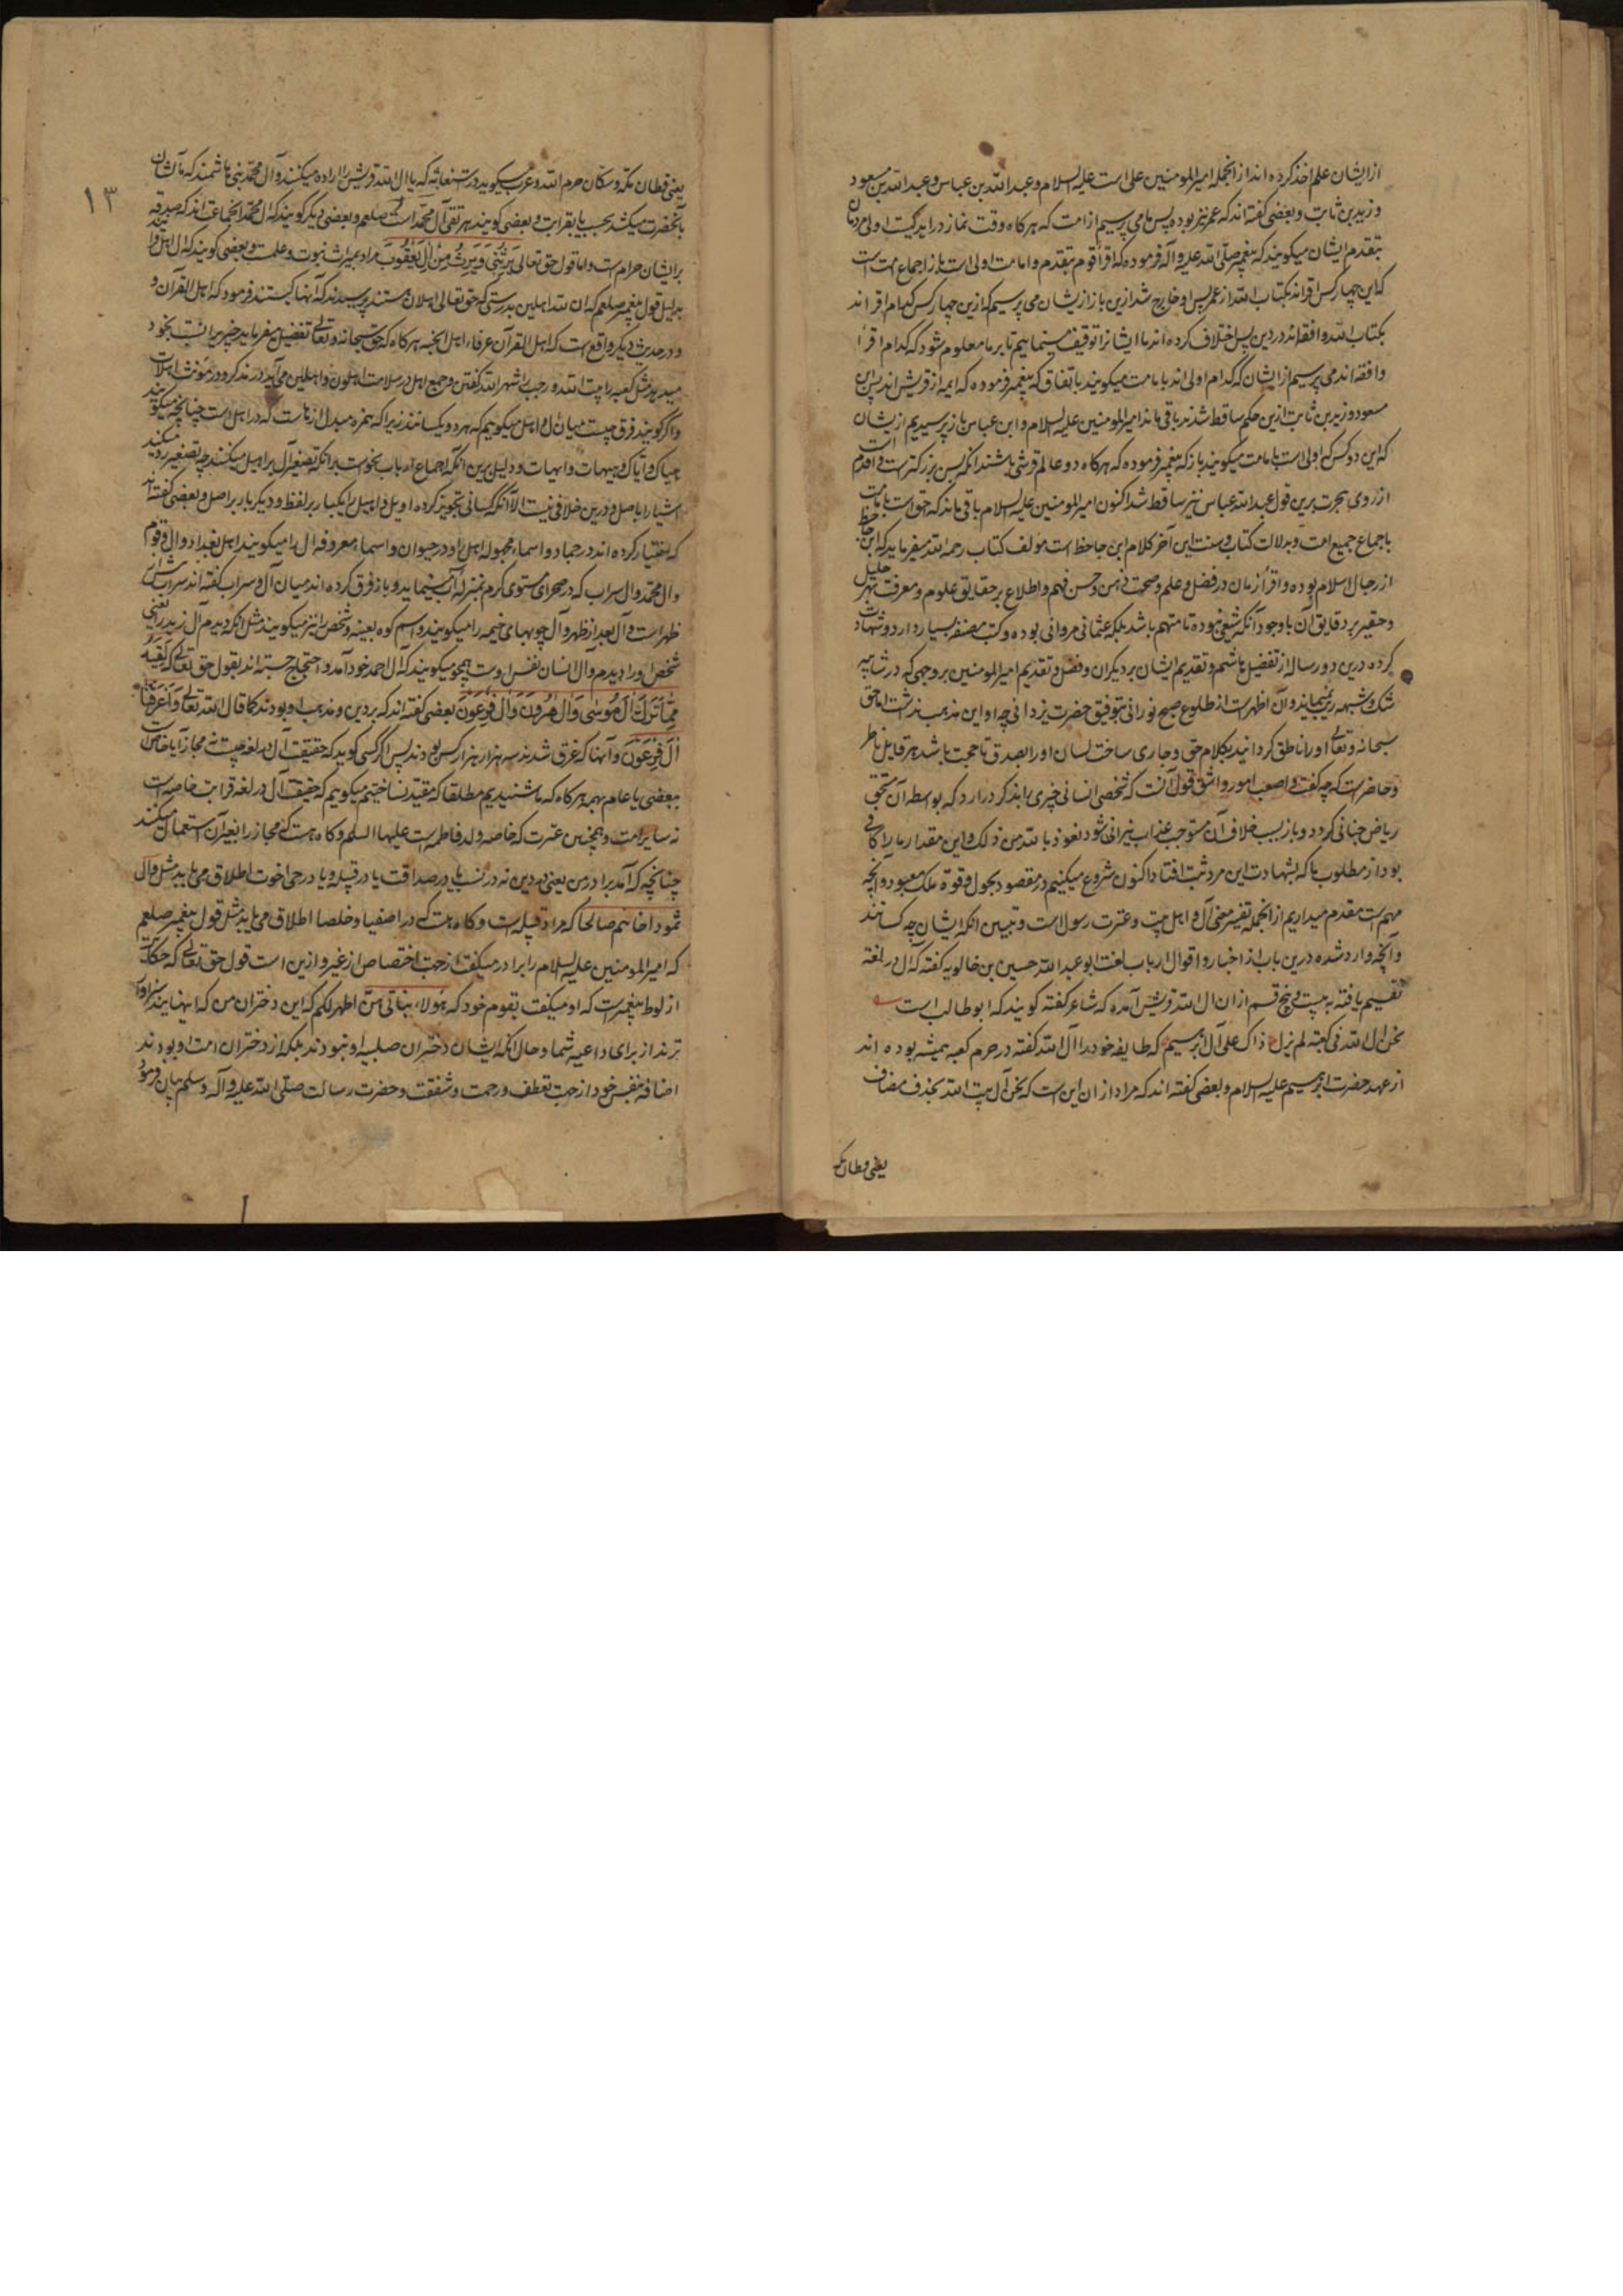 از ایشان علم اخذ کرده اند از انجمله امیرالمومنین علی است علیه السلام و عبد الله بن عباس و عبد الله بن مسعود
و زید بن ثابت و بعضی گفته اند که عمر نیز بوده پس ما می پرسیم از امت که هرکاه وقت نماز در اید کیست اولی مردمان
بتقدم ایشان میکویند که پیغمبر صلی الله علیه و آله فرموده که اقرأ قوم بتقدم و امامت اولی است باز اجماع امت است
که این چهار کس اقراند بکتاب الله از عمر پس او خارج شد ازین باز از ایشان می پرسیم که ازین چهار کس کدام اقراند
بکتاب الله و افقه اند در دین پس اختلاف کرده اند ما ایشانرا توقیف مینماییم تا بر ما معلوم شود که کدام اقرأ
و افقه اند می پرسیم از ایشان که کدام اولی اند بامامت میکویند باتفاق که پیغمبر فرموده که ایمه از قریش اند پس ابن
مسعود و زید بن ثابت ازین حکم ساقط شدند باقی ماند امیرالمومنین علیه السلام و ابن عباس باز پرسیدیم از ایشان
که این دو کس که اولی است بامامت میکویند باز که پیغمبر فرموده که هرکاه دو عالم قرشی باشند انکه بسن بزرکترست و اقدم است
از روی هجرت برین قول عبد الله عباس نیز ساقط شد اکنون امیرالمومنین علیه السلام باقی ماند که حق است بامامت
باجماع جمیع امت و بدلالت کتاب و سنت این آخر کلام ابن جاحظ است مولف کتاب رحمه الله میفرماید که این جاحظ
از رجال اسلام بوده و اقرأ زمان در فضل و علم و صحت ذهن و حسن فهم و اطلاع بر حقایق علوم و معرفت بهر جلیل
و حقیر بر دقایق آن با وجود آنکه شیعی نبوده تا متهم باشد بلکه عثمانی مروانی بوده و کتب مصنفه بسیار دارد و شهادت
کرده درین دو رساله از تفضیل هاشم و تقدیم ایشان بر دیکران و فضل و تقدیم امیرالمومنین بر وجهی که در شایبه
شک و شبهه نمیماند و آن اظهرست از طلوع صبح نورانی بتوفیق حضرت یزدانی چه او این مذهب نداشت اما حق
سبحانه و تعالی او را ناطق کردانید بکلام حق و جاری ساخت لسان او را بصدق تا حجت باشد هر قایل ناظر
و حاضرست که چه گفت و اصعب امور و اشق قول آنست که شخصی انسانی چیزی را بذکر درارد که بواسطه آن مستحق
ریاض جنانی کردد و باز بسبب خلاف آن مستوجب عذاب نیرانی شود نعوذ بالله من ذلک و این مقدار ما را کافی
بود از مطلوب ما که بشهادت این مرد ثبت افتاد اکنون شروع میکنیم در مقصود بحول و قوة ملک معبود و انچه
مهم است مقدم میداریم از انجمله تفسیر معنی آل و اهل بیت و عترت رسول است و تبیین انکه ایشان چه کسانند
و آنچه وارد شده درین باب از اخبار و اقوال ارباب لغت ابو عبد الله حسین بن خالویه گفته که آل در لغة
تقسیم یافته به بیست و پنج قسم از ان ال الله قریش آمده که شاعر گفته کویند که ابو طالب است
نحن ال الله فی کعبته لم یزل ذاک علی آل ابرهیم که طایفه خود را آل الله گفته در حرم کعبه همیشه بوده اند
از عهد حضرت ابرهیم علیه السلام و بعضی گفته اند که مراد از ان این است که نحن آل بیت الله بحذف مضاف
یعنی قطان مکه
١٣
یعنی قطان مکه و سکان حرم الله و عرب میکوید در استغاثه که یا ال الله قریش را اراده میکنند و آل محمد بنی هاشمند که مآلشان
بآنحضرت میکشد بحسب یا بقرابت و بعضی کویند هر تقی آل محمد است صلعم و بعضی دیکر کویند که ال محمد انجماعت اند که صدقه
بر ایشان حرام است و اما قول حق تعالی یَرِثُنِی وَیَرِثُ مِنْ اٰلِ یَعْقُوبَ مراد میراث نبوت و علمست و بعضی کویند که ال اهل
بدلیل قول پیغمبر صلعم که ان لله اهلین بدرستی که حق تعالی اهلان هستند پرسیدند که آنها کیستند فرمود که اهل القرآن و
و در حدیث دیکر واقع است که اهل القرآن عرفاء اهل الجنه هرکاه که حق سبحانه و تعالی تفضیل میفرماید چیزیرا نسبت بخود
میدهد مثل کعبه را بیت الله و رجب را شهر الله گفتن و جمع اهل در سلامت اهلون و اهلین می آید در مذکر و در مونث اهلات
و اکر کویند فرق چیست میان ال و اهل میکویم که هر دو یکسانند زیرا که همزه مبدل از هاست که در اهل است چنانچه میکویند
هیاک و ایاک و هیهات و ایهات و دلیل برین آنکه اجماع ارباب نحوست بر انکه تصغیر آل بر اهیل میکنند چه تصغیر رد میکند
اشیا را باصل و درین خلافی نیست الا آنکه کسائی تجویز کرده اویل و اهیل را یکبار بر لفظ و دیکر بار بر اصل و بعضی گفته اند
که اختیار کرده اند در جماد و اسماء مجهوله اهل را و در حیوان و اسماء معروفه ال را میکویند اهل بغداد و ال قوم
و ال محمد و ال سراب که در صحرای مستوی کرم بمنزله آب مینماید و باز فرق کرده اند میان آل و سراب گفته اند سراب
ظهر است و آل بعد از ظهر و آل چوبهای خیمه را میکویند و اسم کوه بعینه و شخص را نیز میکویند مثل انکه دیدم آل زید را یعنی
شخص او را دیدم و ال انسان نفس اوست همچو میکویند که آل احمد خود آمد و احتجاج جسته اند بقول حق تعالی که بَقِیَّةٌ
مِمَّا تَرَكَ اٰلُ مُوسٰی وَاٰلُ هٰرُونَ وَاٰلُ فِرْعَوْنَ بعضی گفته اند که بر دین و مذهب او بودند کما قال الله تعالی وَاَغْرَقْنَا
اٰلَ فِرْعَوْنَ و آنها که غرق شدند سه هزار هزار کس بودند پس اکر کسی کوید که حقیقت آل در لغه چیست نه مجاز آیا خاص است
ببعضی یا عام بهمه هرکاه که ما شنیدیم مطلقا که مقید نساختیم میکویم که حقیقت آل در لغه قرابت خاصه است
نه سایر امت و همچنین عترت که خاصه ولد فاطمه است علیها السلم و کاه هست که مجاز را بغیر آن استعمال میکنند
چنانچه که آمد برادر من یعنی در دین نه در نسب یا در صداقت یا در قبیله و یا در حی اخوت اطلاق می یابد مثل و ال
ثمود اخاهم صالحا که مراد قبیله است و کاه هست که در اصفیا و خلصا اطلاق می یابد مثل قول پیغمبر صلعم
که امیرالمومنین علیه السلام را برادر میگفت از جهت اختصاص از غیر و ازین است قول حق تعالی که حکایت
از لوط پیغمبرست که او میگفت بقوم خود که هؤلاء بناتی هن اطهر لکم که این دختران من که اینهایند سزاوار
ترند از برای داعیه شما و حال انکه ایشان دختران صلبیه او نبودند بلکه از دختران امت او بودند
اضافه بنفس خود از جهت تعطف و رحمت و شفقت و حضرت رسالت صلی الله علیه و آله و سلم بیان فرمود